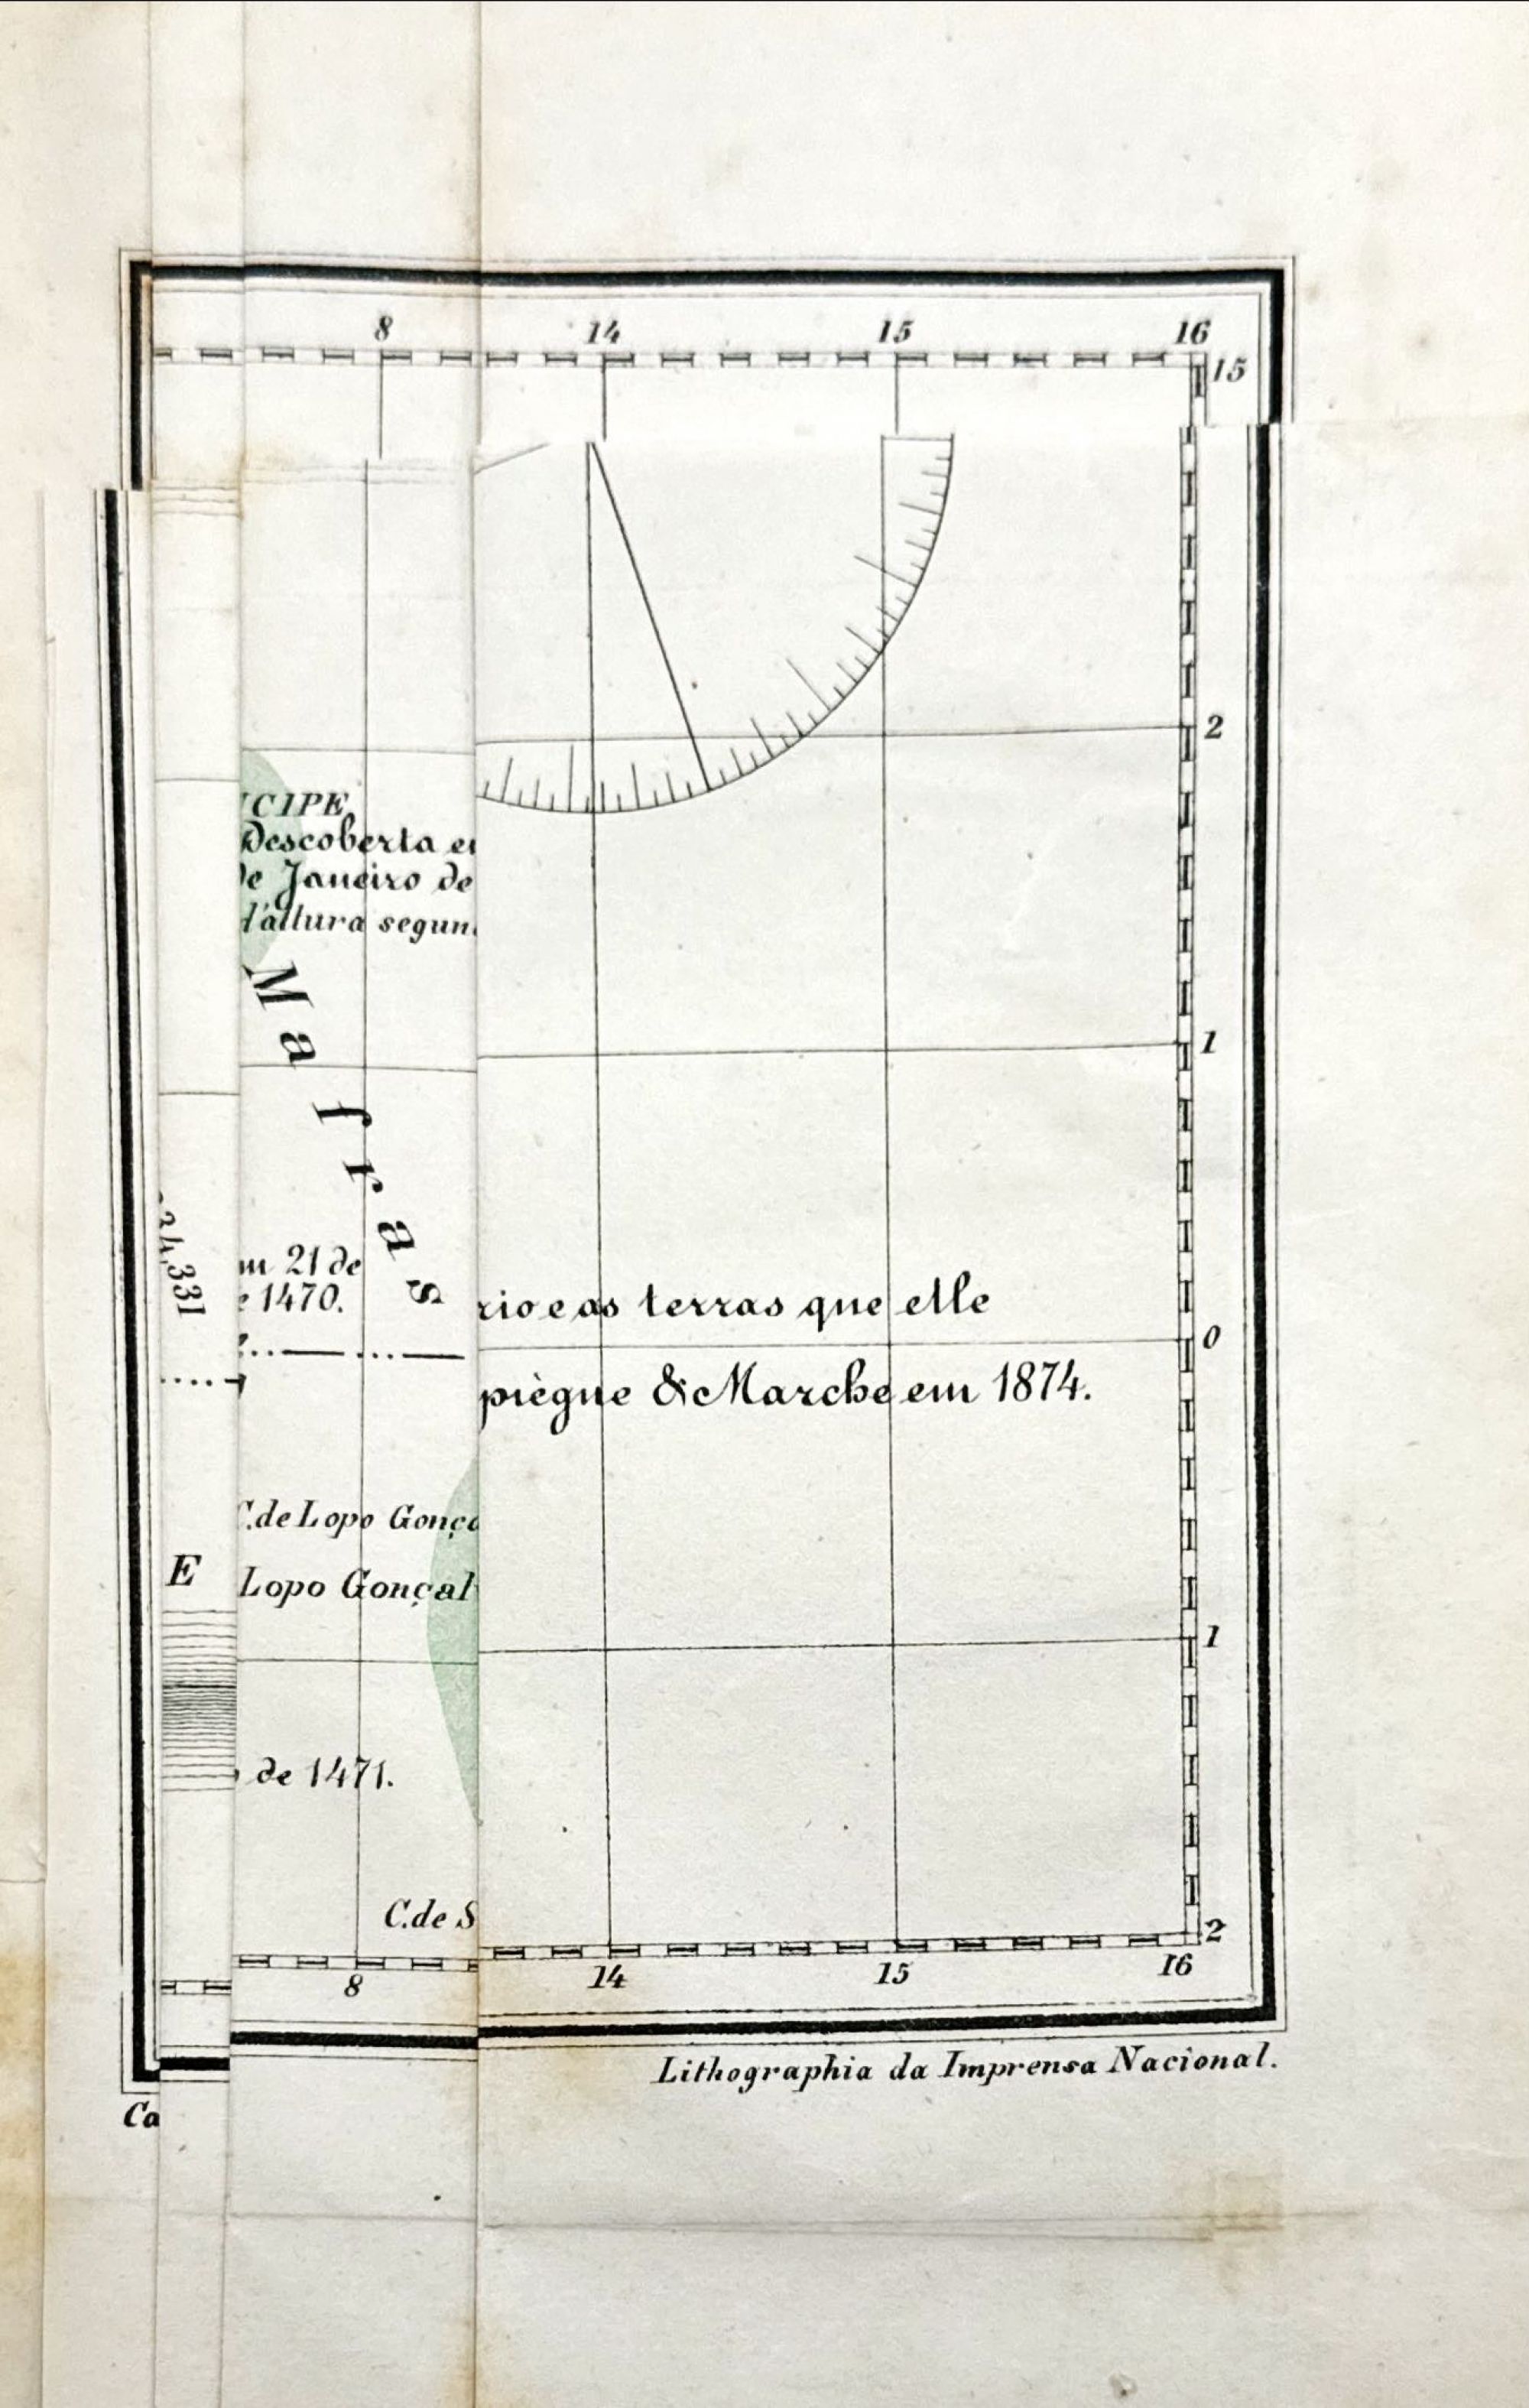 8 14 15 16
15
2
CIPE
Descoberta e
de Janeiro de
d'altura segun
Mafras
1
34,331
m 21 de
1470.
rio e as terras que elle
0
piègne & Marche em 1874.
C. de Lopo Gonç
E
Lopo Gonçal
1
de 1471.
C. de S
2
8 14 15 16
Lithographia da Imprensa Nacional.
Ca